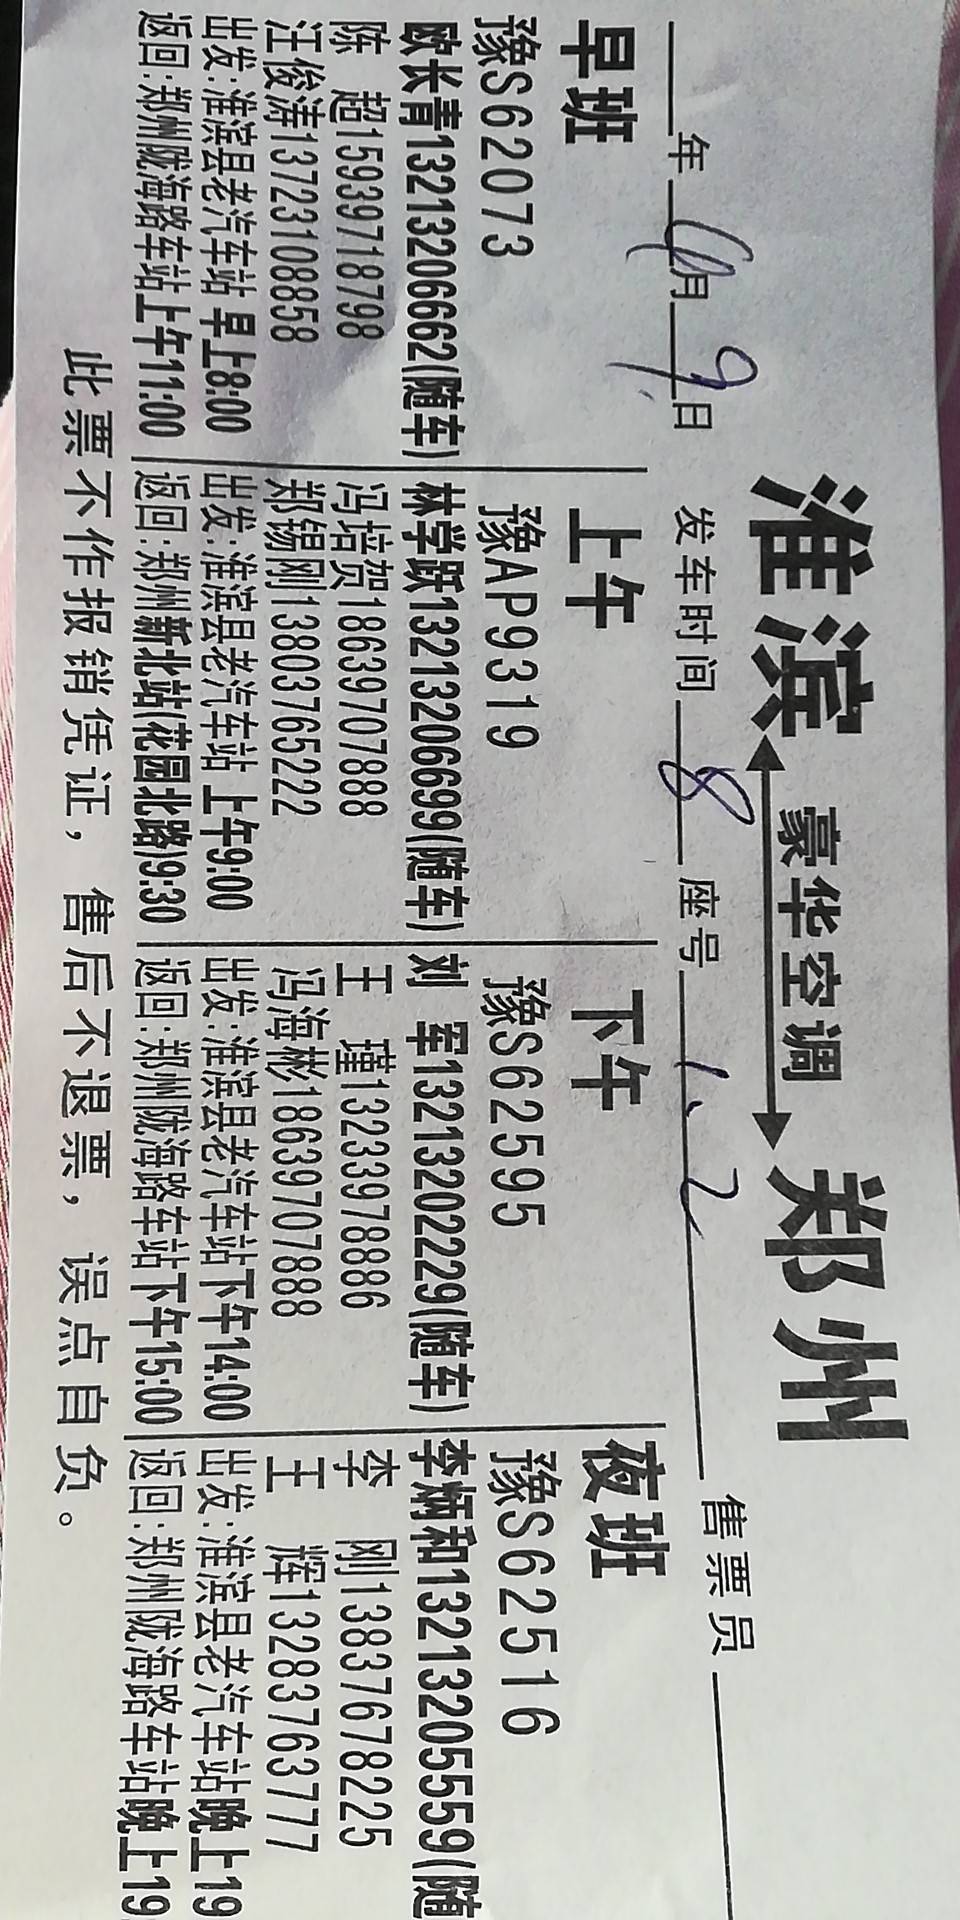 淮滨 豪华空调 郑州
年 6月 9日 发车时间 8 座号 1、2 售票员
早班
豫S62073
欧长青13213206662(随车)
陈 超15939718798
汪俊涛13723108858
出发:淮滨县老汽车站 早上8:00
返回:郑州陇海路车站上午11:00
上午
豫AP9319
林学跃13213206699(随车)
冯培贺18639707888
郑锡刚13803765222
出发:淮滨县老汽车站 上午9:00
返回:郑州新北站(花园北路)9:30
下午
豫S62595
刘 军13213202229(随车)
王 瑾13233978886
冯海彬18639707888
出发:淮滨县老汽车站下午14:00
返回:郑州陇海路车站下午15:00
夜班
豫S62516
李炳和13213205559(随
李 刚13837678225
王 辉13283763777
出发:淮滨县老汽车站晚上19
返回:郑州陇海路车站晚上19
此票不作报销凭证，售后不退票，误点自负。